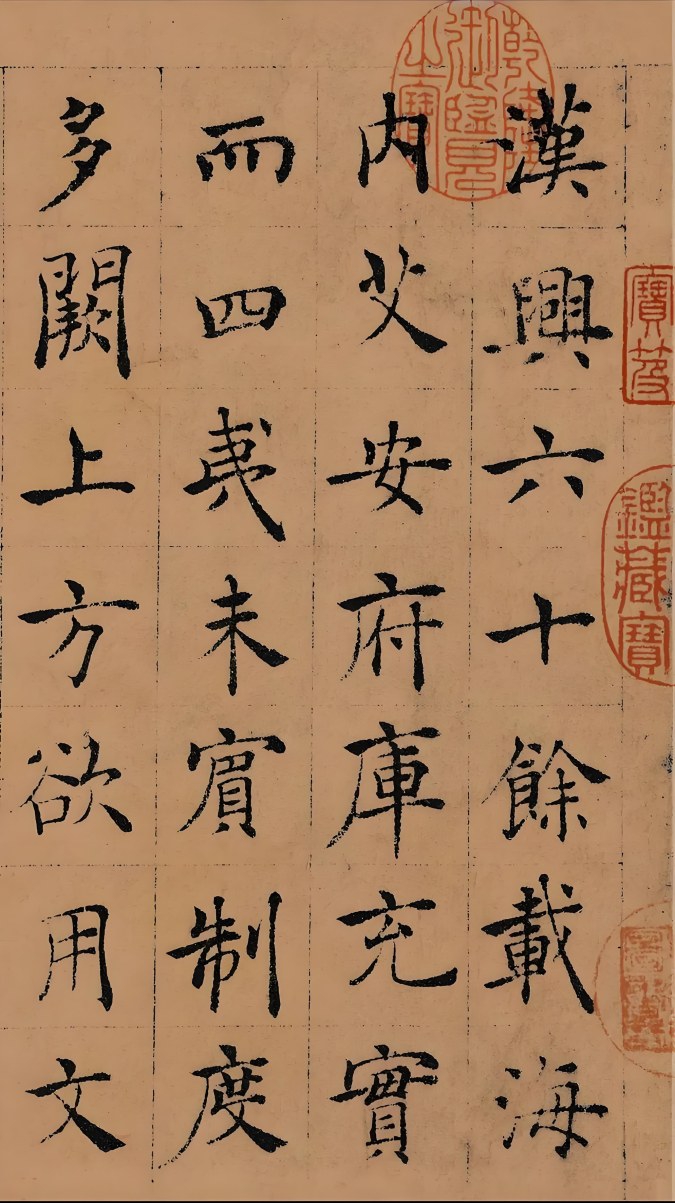 漢興六十餘載海
内艾安府庫充實
而四夷未賔制度
多闕上方欲用文
乾隆御覽之寶
寶笈
鑑藏寶